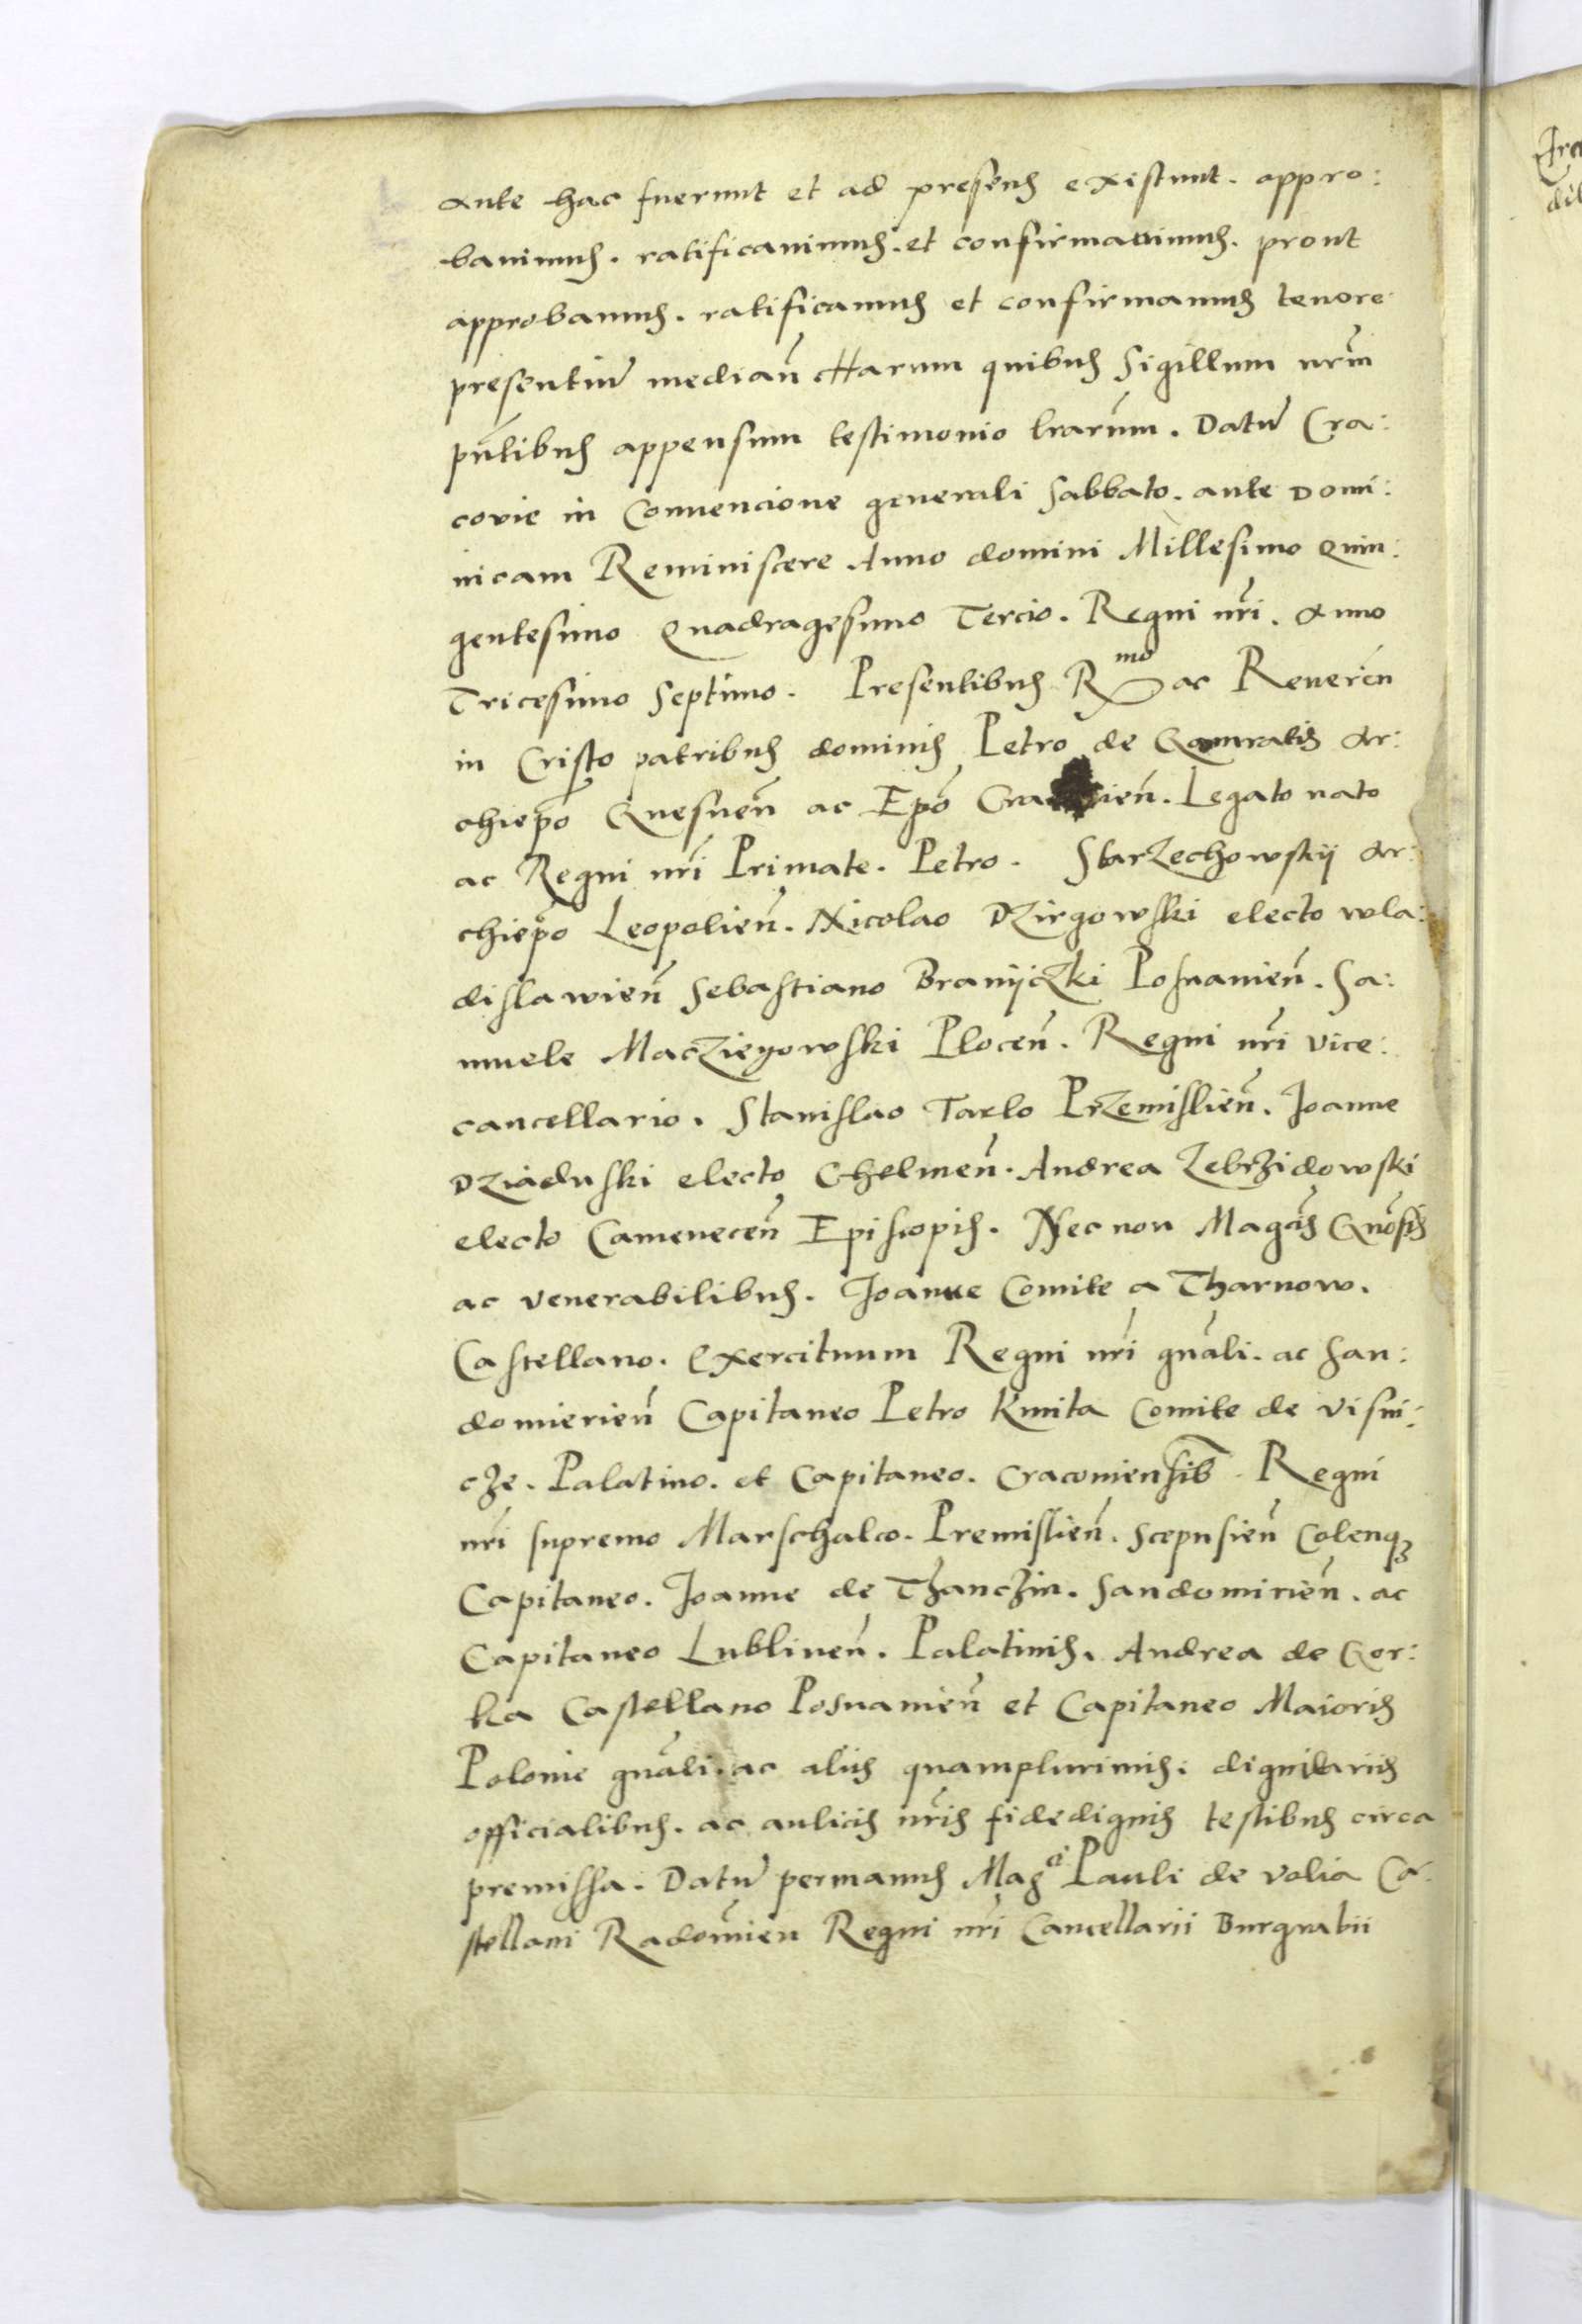 ante hac fuerunt et ad presens existunt. appro:
bauimus. ratificauimus. et confirmauimus. prout
approbamus. ratificamus et confirmamus tenore
presentiũ median̄ Harum quibus Sigillum nr̄m
pn̄tibus appensum testimonio lrarūm. Datũ Cra:
covie in Conuencione generali Sabbato. ante Domi:
nicam Reminiscere Anno domini Millesimo Quin:
gentesimo Quadragesimo Tercio. Regni nr̄i. Anno
Tricesimo Septimo. Presentibus Rmo ac Reueren̄
in Cristo patribus dominis Petro de Gamratis Ar:
chiep̄o Gnesnen̄ ac Ep̄o Cra ien̄. Legato nato
ac Regni nr̄i Primate. Petro. Starzechowskij Ar:
chiep̄o Leopolien̄. Nicolao Dzirgowski electo wla:
dislawien̄ Sebastiano Branijczki Posnanien̄. Sa:
muele Macziegowski Plocen̄. Regni nr̄i Vice:
cancellario. Stanislao Tarlo Przemislien̄. Joanne
Dziaduski electo Chelmen̄. Andrea Zebrzidowski
electo Camenecen̄ Episcopis. Nec non Magcīs Gn̄osis
ac venerabilibus. Joanne Comite a Tharnow.
Castellano. Exercituum Regni nr̄i gn̄ali. ac San:
domierien̄ Capitaneo Petro Kmita Comite de Visni:
cze. Palatino. et Capitaneo. Cracouiensib̄. Regni
nr̄i supremo Marschalco. Premislien̄. Scepusien̄ Colenqꝫ
Capitaneo. Joanne de Thanczin. Sandomirien̄. ac
Capitaneo Lublinen̄. Palatinis. Andrea de Gor:
ka Castellano Posnanien̄ et Capitaneo Maioris
Polonie gn̄ali. ac aliis quamplurimis. dignitariis
officialibus. ac aulicis nr̄is fidedignis testibus circa
premissa. Datũ permanus Magci Pauli de Volia Ca
stellani Radomien̄ Regni nr̄i Cancellarii Burgrabii